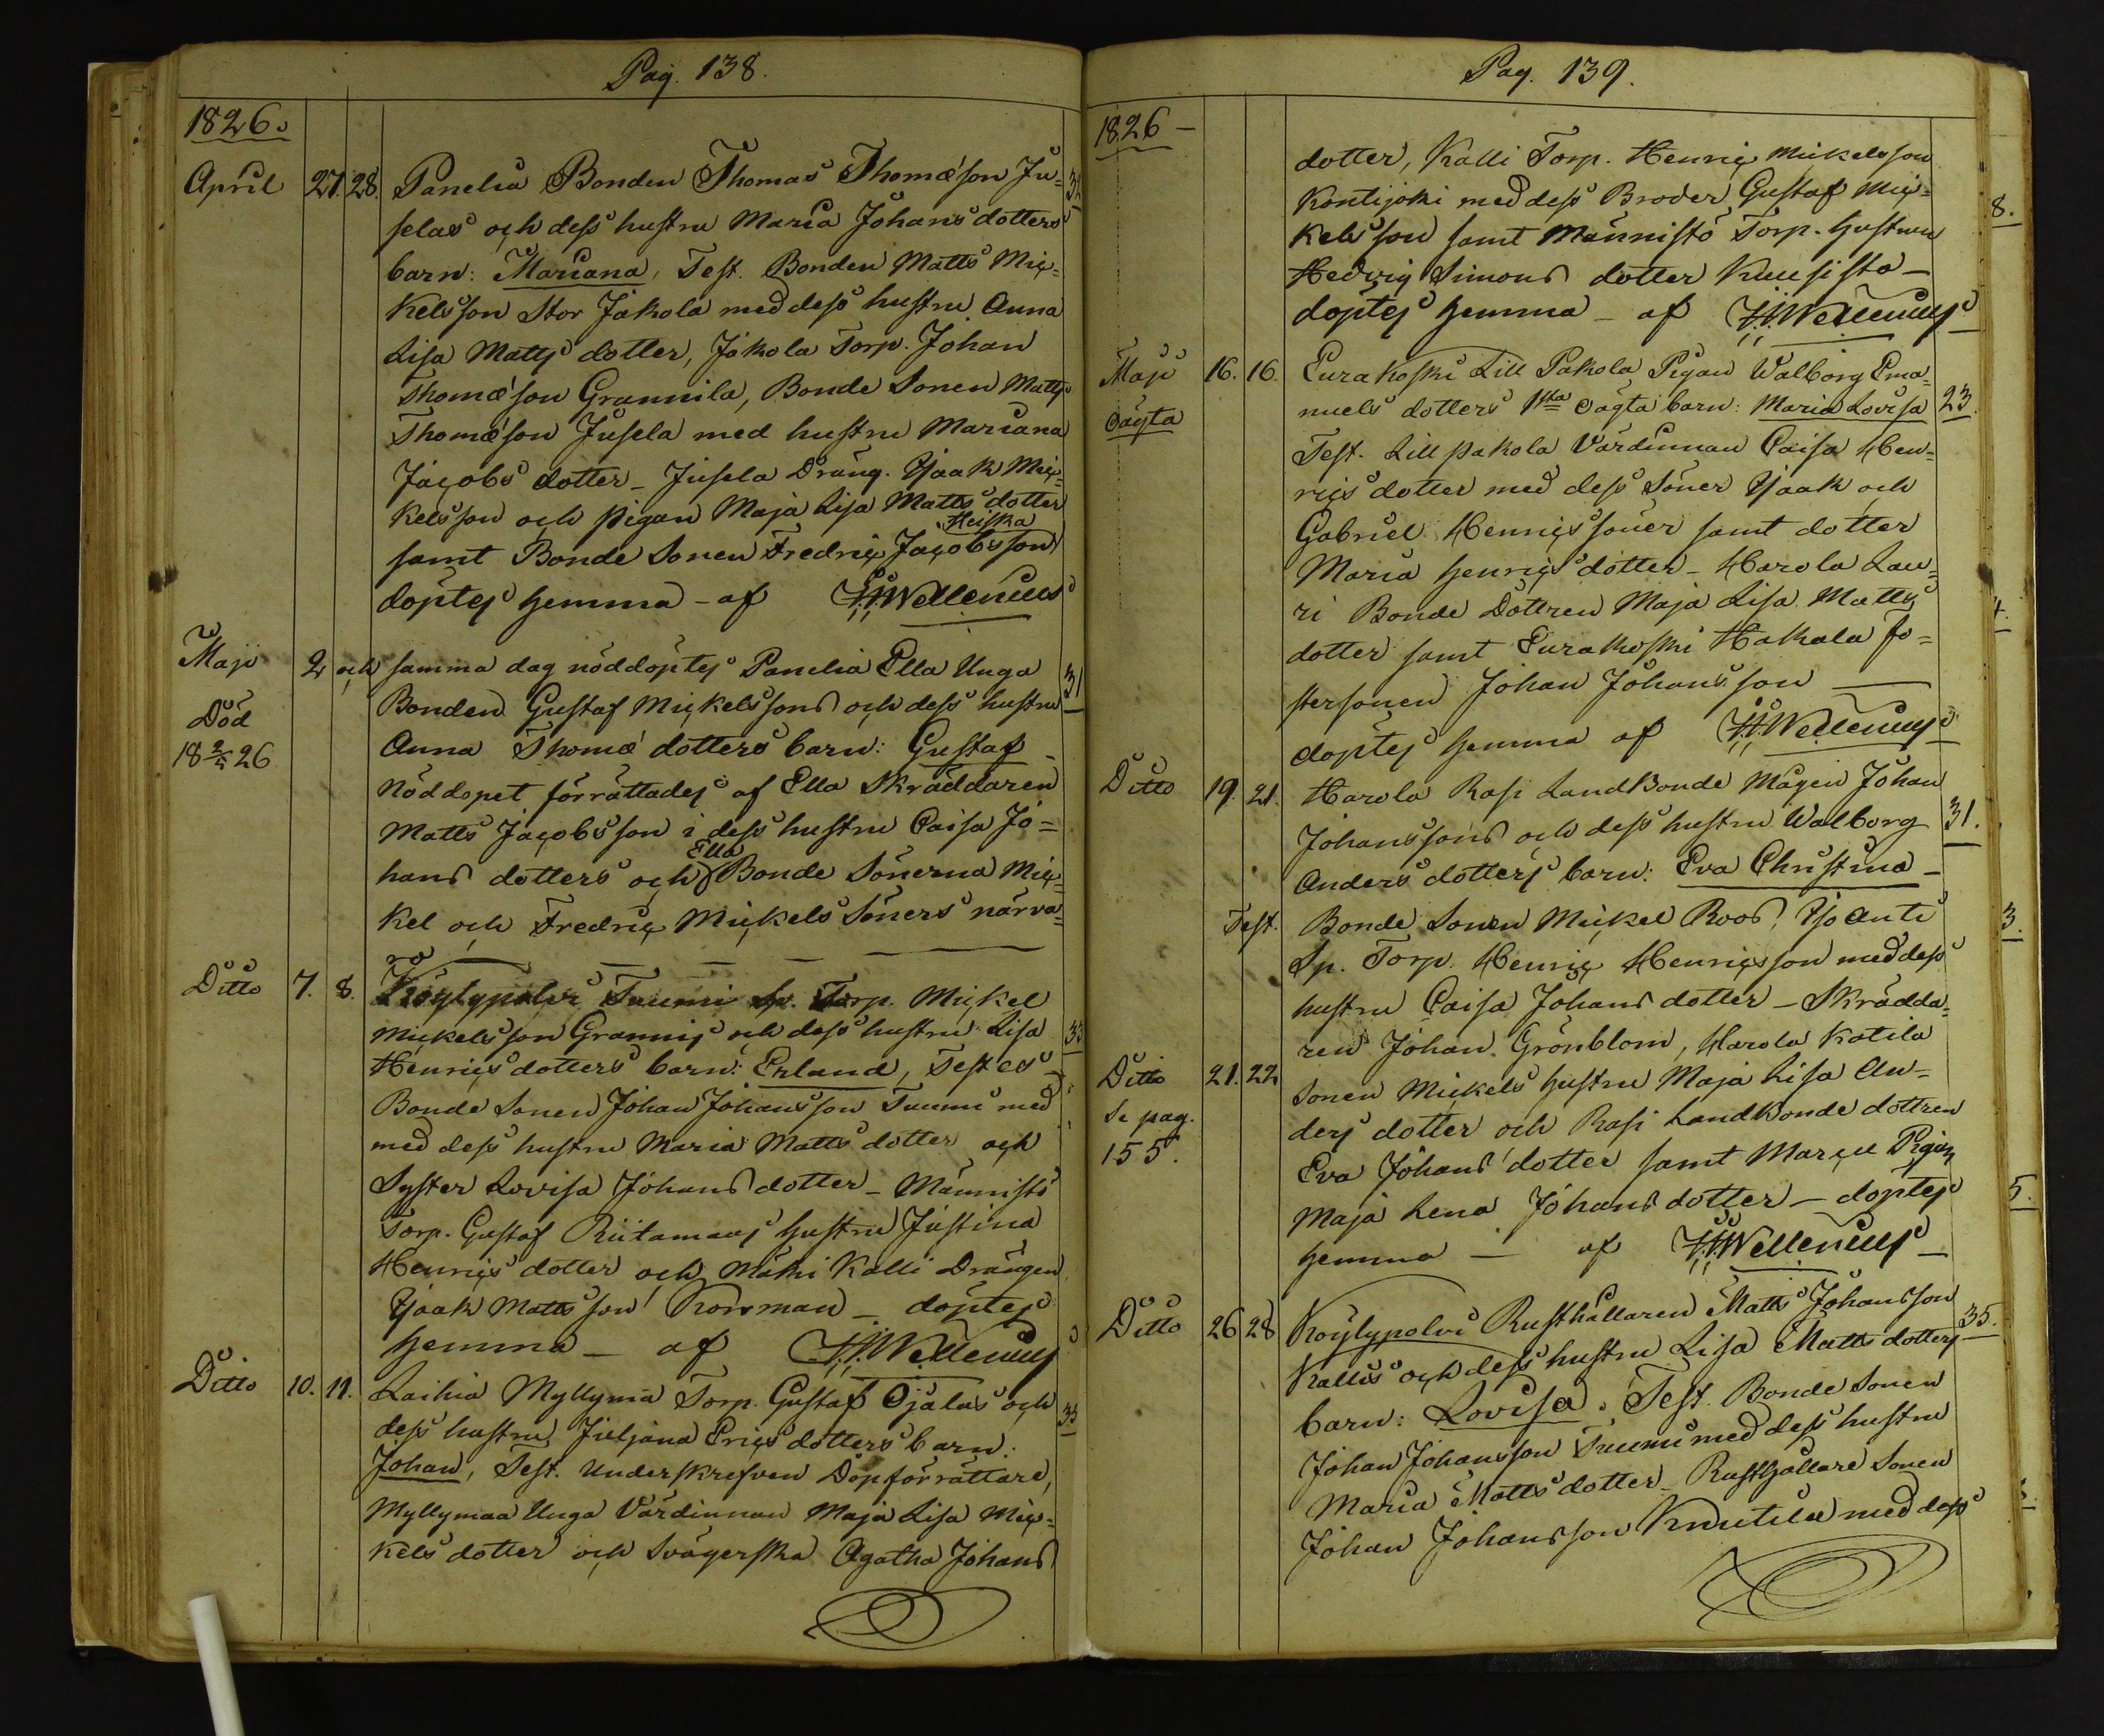 Pag. 138.
1826.
April 27. 28. Panelia Bonden Thomas Thomæson Ju= 32
selas och dess hustru Maria Johans dotters
barn: Mariana, Test. Bonden Matts Mic=
kelsson Stor Jakola med dess hustru Anna
Lisa Matts dotter, Jakola Torp. Johan
Thomæson Grannila, Bonde Sonen Matts
Thomæson Jusela med hustru Mariana
Jacobs dotter – Jusela Dräng. Isaak Mic=
kelsson och pigan Maja Lisa Matts dotter
samt Bonde Sonen Fredric Jacobsson Heiska
döptes hemma – af H.H. Wellenius
Maji 2 och samma dag nöddöptes Panelia Ella Unga 31
Död Bonden Gustaf Mickelssons och dess hustru
18 2/5 26 Anna Thomæ dotters barn: Gustaf –
Nöddopet förrättades af Ella Skräddaren
Matts Jacobsson i dess hustru Caisa Jo=
hans dotters och Ella Bonde Sönerna Mic=
kel och Fredric Mickels Söners närva=
ro
Ditto 7. 8. Köylypolvi Tuumi Sp. Torp. Mickel
Mickelsson Grannis och dess hustru Lisa 33
Henrics dotters barn: Erland, Testes –
Bonde Sonen Johan Johansson Tuumi med
med dess hustru Maria Matts dotter och
Syster Lovisa Johans dotter – Männistö
Torp. Gustaf Riitamaas hustru Justina
Henrics dotter och Mäki Kalli Drängen
Isaak Mattsson Korsman – döptes
hemma – af H.H. Wellenius
Ditto 10. 11. Laihia Myllymä Torp. Gustaf Ojalas och 33
dess hustru Juljana Erics dotters barn:
Johan, Test. Underskrefven Döpförrättare,
Myllymaa Unga Värdinnan Maja Lisa Mic=
kels dotter och Svägerska Agatha Johans
Pag. 139.
1826 –
dotter, Kalli Torp. Henric Mickelsson
Kontijoki med dess Broder Gustaf Mic= 8.
kelsson samt Männistö Torp. hustrun
Hedvig Simons dotter Kuusisto –
döptes hemma – af H.H. Wellenius
Maji 16. 16. Eurakoski Lill Pakola Pigan Walborg Ema=
Oägta nuels dotters 1sta oägta barn: Maria Lovisa 23.
Test. Lill pakola Värdinnan Caisa Hen=
rics dotter med dess Söner Isaak och
Gabriel Henricssöner samt dotter
Maria Henrics dotter – Harola Lau=
ri Bonde Dottren Maja Lisa Matts 4.
dotter samt Eurakoski Hakala Fo=
stersonen Johan Johansson –
döptes hemma af H.H. Wellenius
Ditto 19. 21. Harola Rasi LandBonde Mågen Johan
Johanssons och dess hustru Walborg 31.
Anders dotters barn: Eva Christina –
Test. Bonde Sonen Mickel Roos, Iso Anti 3.
Sp. Torp. Henric Henricsson med dess
hustru Caisa Johans dotter – Skrädda=
ren Johan Grönblom, Harola Katila
Ditto 21. 22 Sonen Mickels hustru Maja Lisa An=
Se pag. ders dotter och Rasi Landbonde dottren
155. Eva Johans dotter samt Marcu Pigan
Maja Lena Johans dotter – döptes 5.
hemma – af H.H. Wellenius –
Ditto 26 28 Köylypolvi Rusthållaren Matts Johansson 35.
Kallis och dess hustru Lisa Matts dotters
barn: Lovisa. Test. Bonde Sonen
Johan Johansson Tuumi med dess hustru
Maria Matts dotter – Rusthållare Sonen
Johan Johansson Knutila med dess